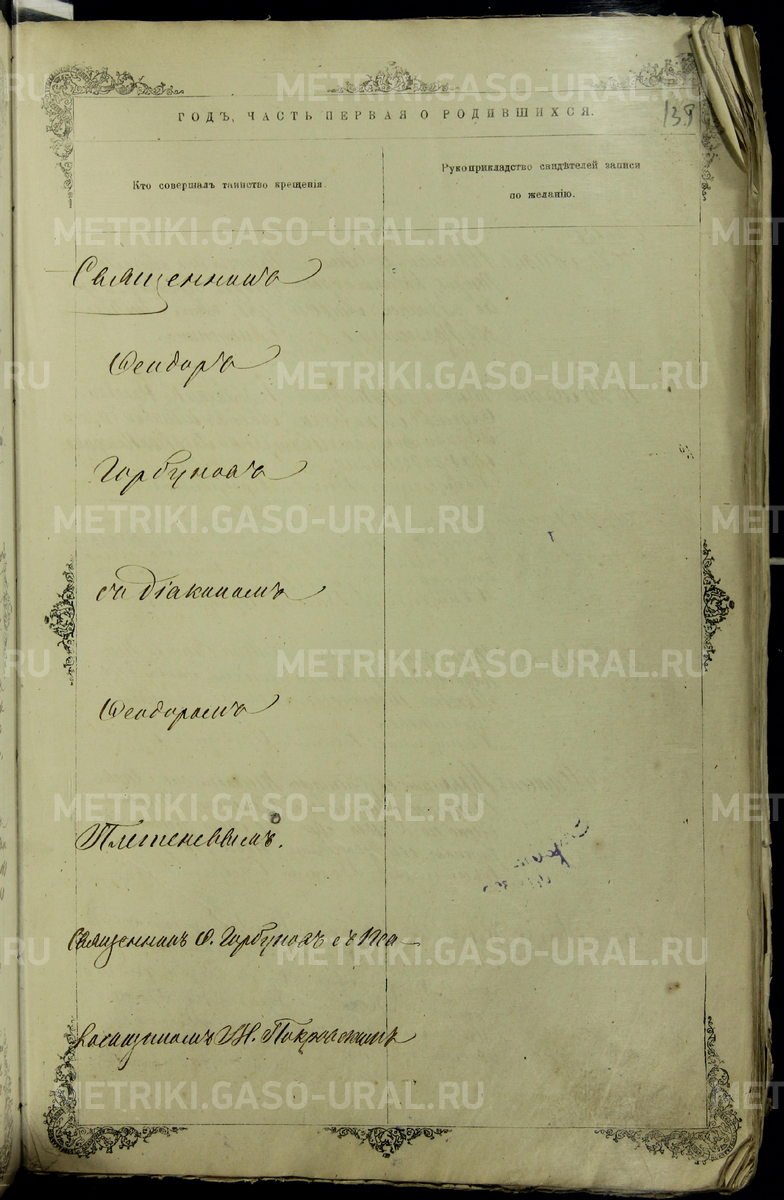 ГОДЪ, ЧАСТЬ ПЕРВАЯ О РОДИВШИХСЯ.
139
Кто совершалъ таинство крещенія.
Рукоприкладство свидѣтелей записи
по желанію.
Священникъ
Ѳеодоръ
Горбуновъ
съ Діакономъ
Ѳеодоромъ
Плетеневымъ.
Священникъ Ѳ. Горбуновъ съ Пса-
ломщикомъ Покровскимъ
METRIKI.GASO-URAL.RU